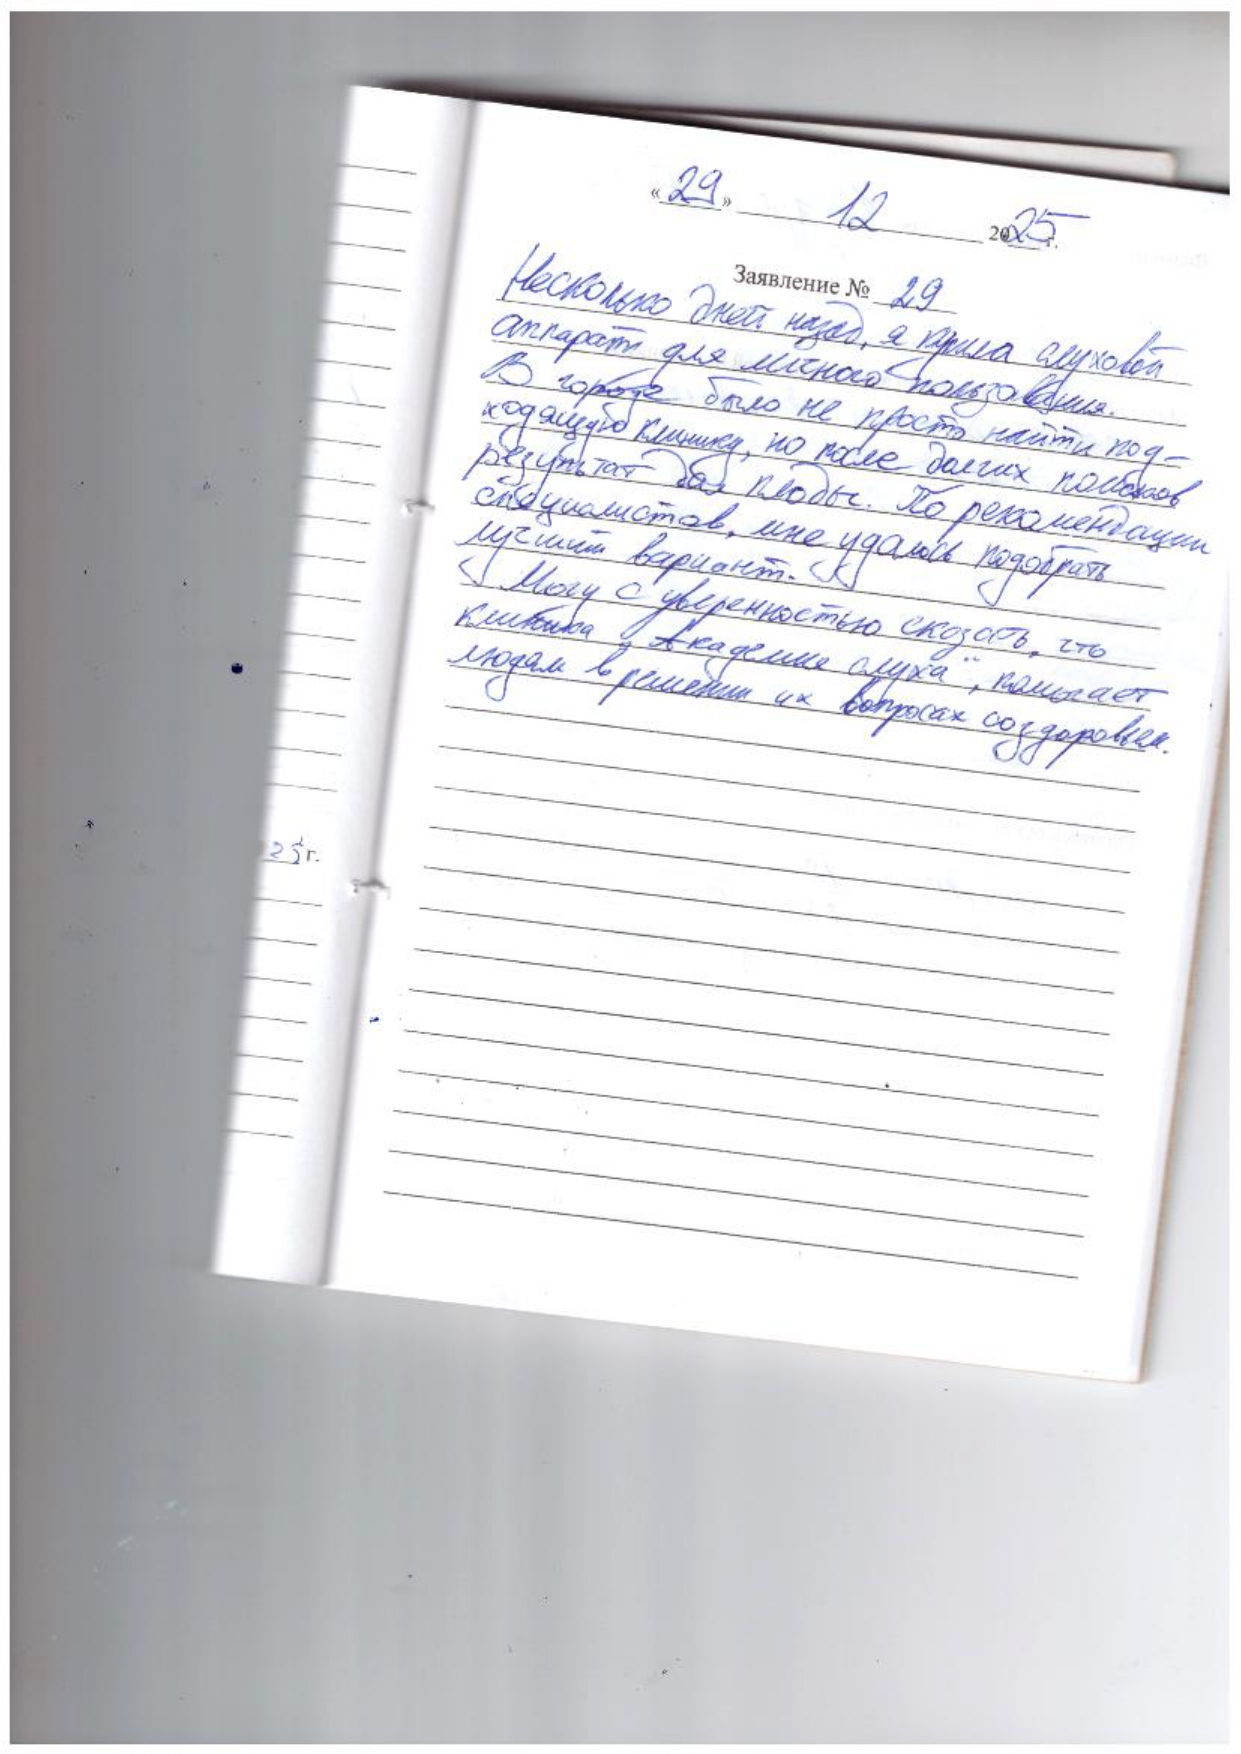 «29» 12 2025 г.
Заявление № 29
Несколько дней назад, я купила слуховой
аппарат для личного пользования.
В городе было не просто найти под-
ходящую клинику, но после долгих поисков
результат дал плоды. По рекомендации
специалистов, мне удалось подобрать
лучший вариант.
Могу с уверенностью сказать, что
клиника „Академия слуха“, помогает
людям в решении их вопросах со здоровьем.
25 г.